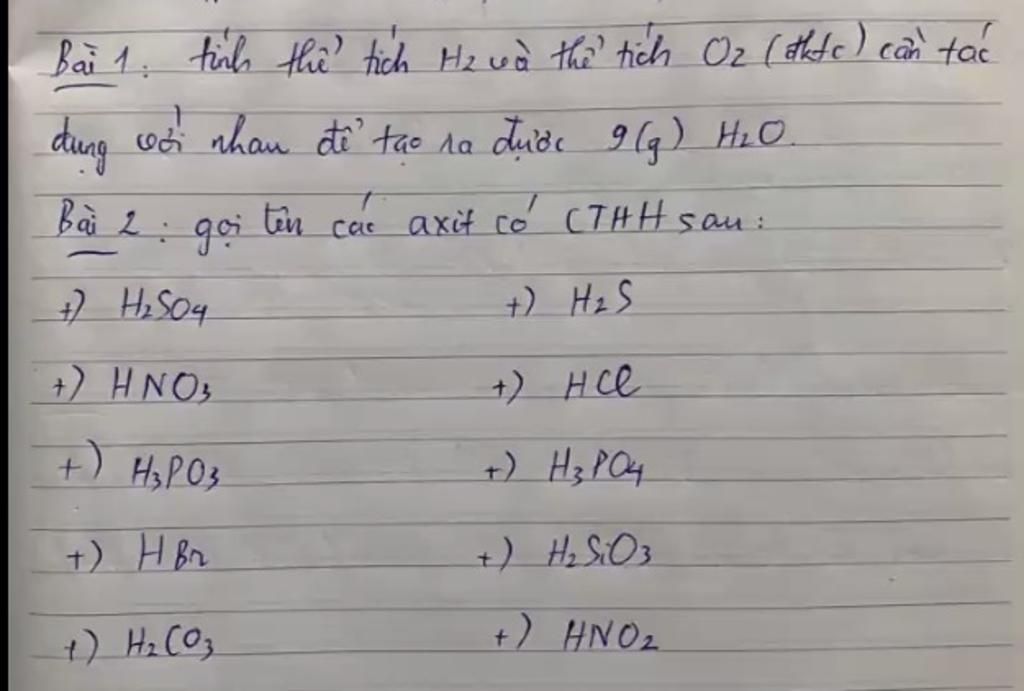 Bài 1: tính thể tích H2 và thể tích O2 (đktc) cần tác
dụng với nhau để tạo ra được 9(g) H2O.
Bài 2: gọi tên các axit có CTHH sau:
+) H2SO4 +) H2S
+) HNO3 +) HCl
+) H3PO3 +) H3PO4
+) HBr +) H2SiO3
+) H2CO3 +) HNO2